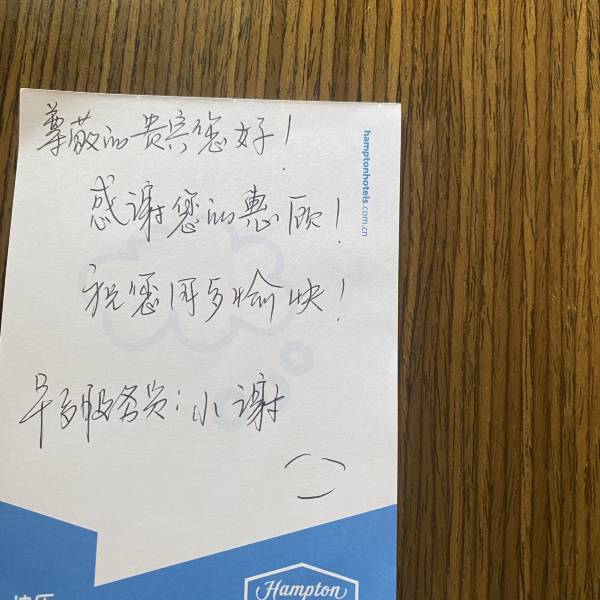 尊敬的贵宾您好!
感谢您的惠顾!
祝您周多愉快!
早る服务员:小谢
hamptonhotels.com.cn
快乐
Hampton